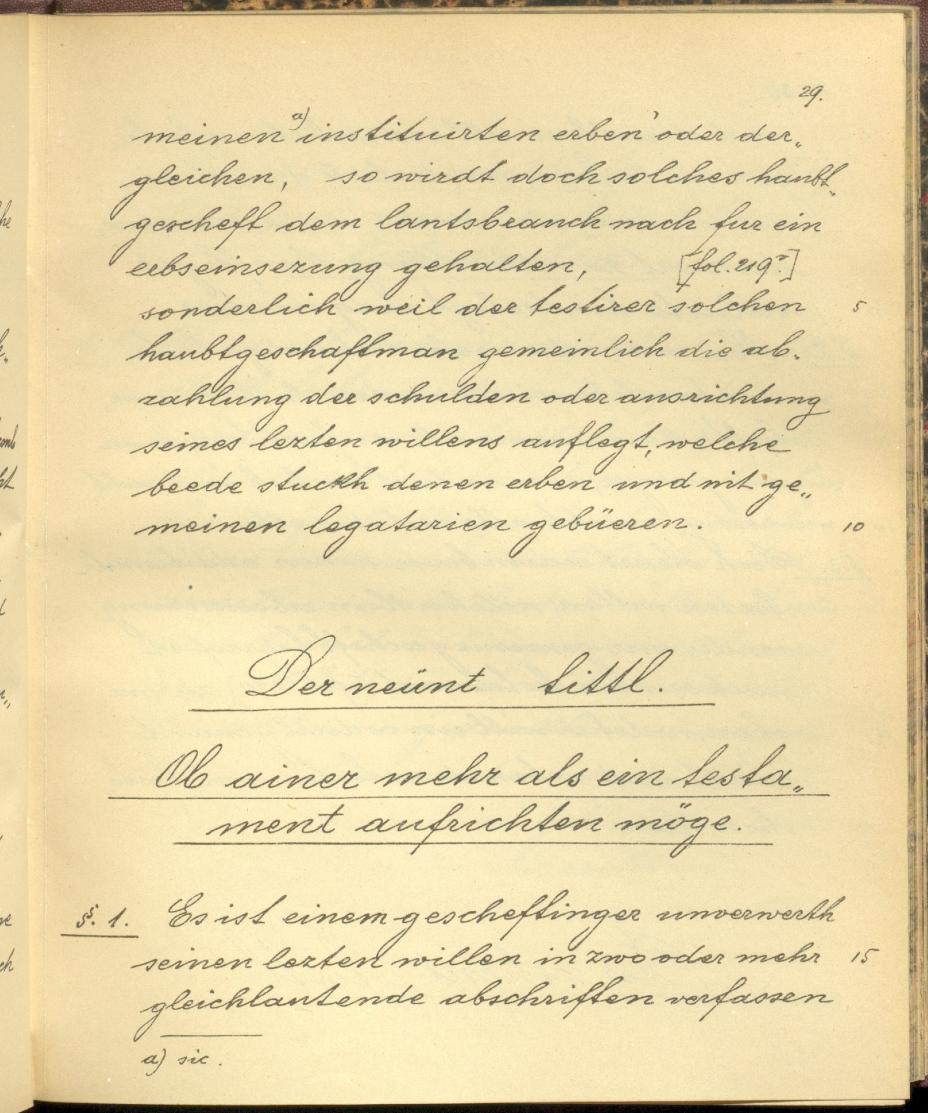 29.
meinen a) instituirten erben' oder der„
gleichen, so wirdt doch solches haubt„
gescheft dem lantsbrauch nach fur ein
erbseinsezung gehalten, [fol. 219r.]
sonderlich weil der testirer solchen 5
haubtgeschaftman gemeinlich die ab-
zahlung der schulden oder ausrichtung
seines lezten willens auflegt, welche
beede stuckh denen erben und nit ge„
meinen legatarien gebüeren. 10
Der neünt tittl.
Ob ainer mehr als ein testa„
ment aufrichten möge.
§. 1. Es ist einem gescheftinger unverwerth
seinen lezten willen in zwo oder mehr 15
gleichlautende abschriften verfassen
a) sic.